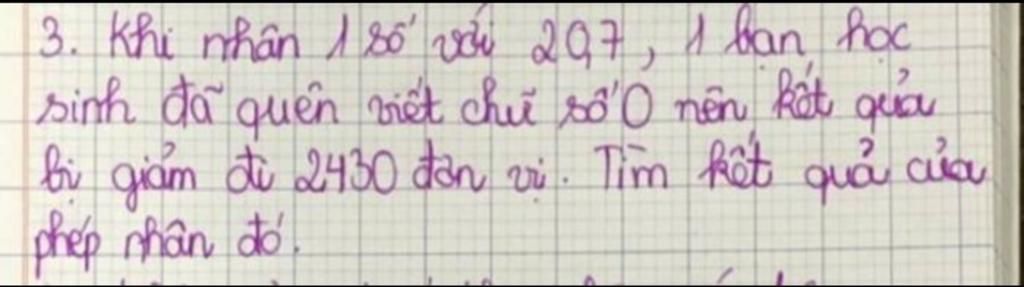 3. Khi nhân 1 số với 207, 1 bạn học
sinh đã quên viết chữ số 0 nên kết quả
bị giảm đi 2430 đơn vị. Tìm kết quả của
phép nhân đó.